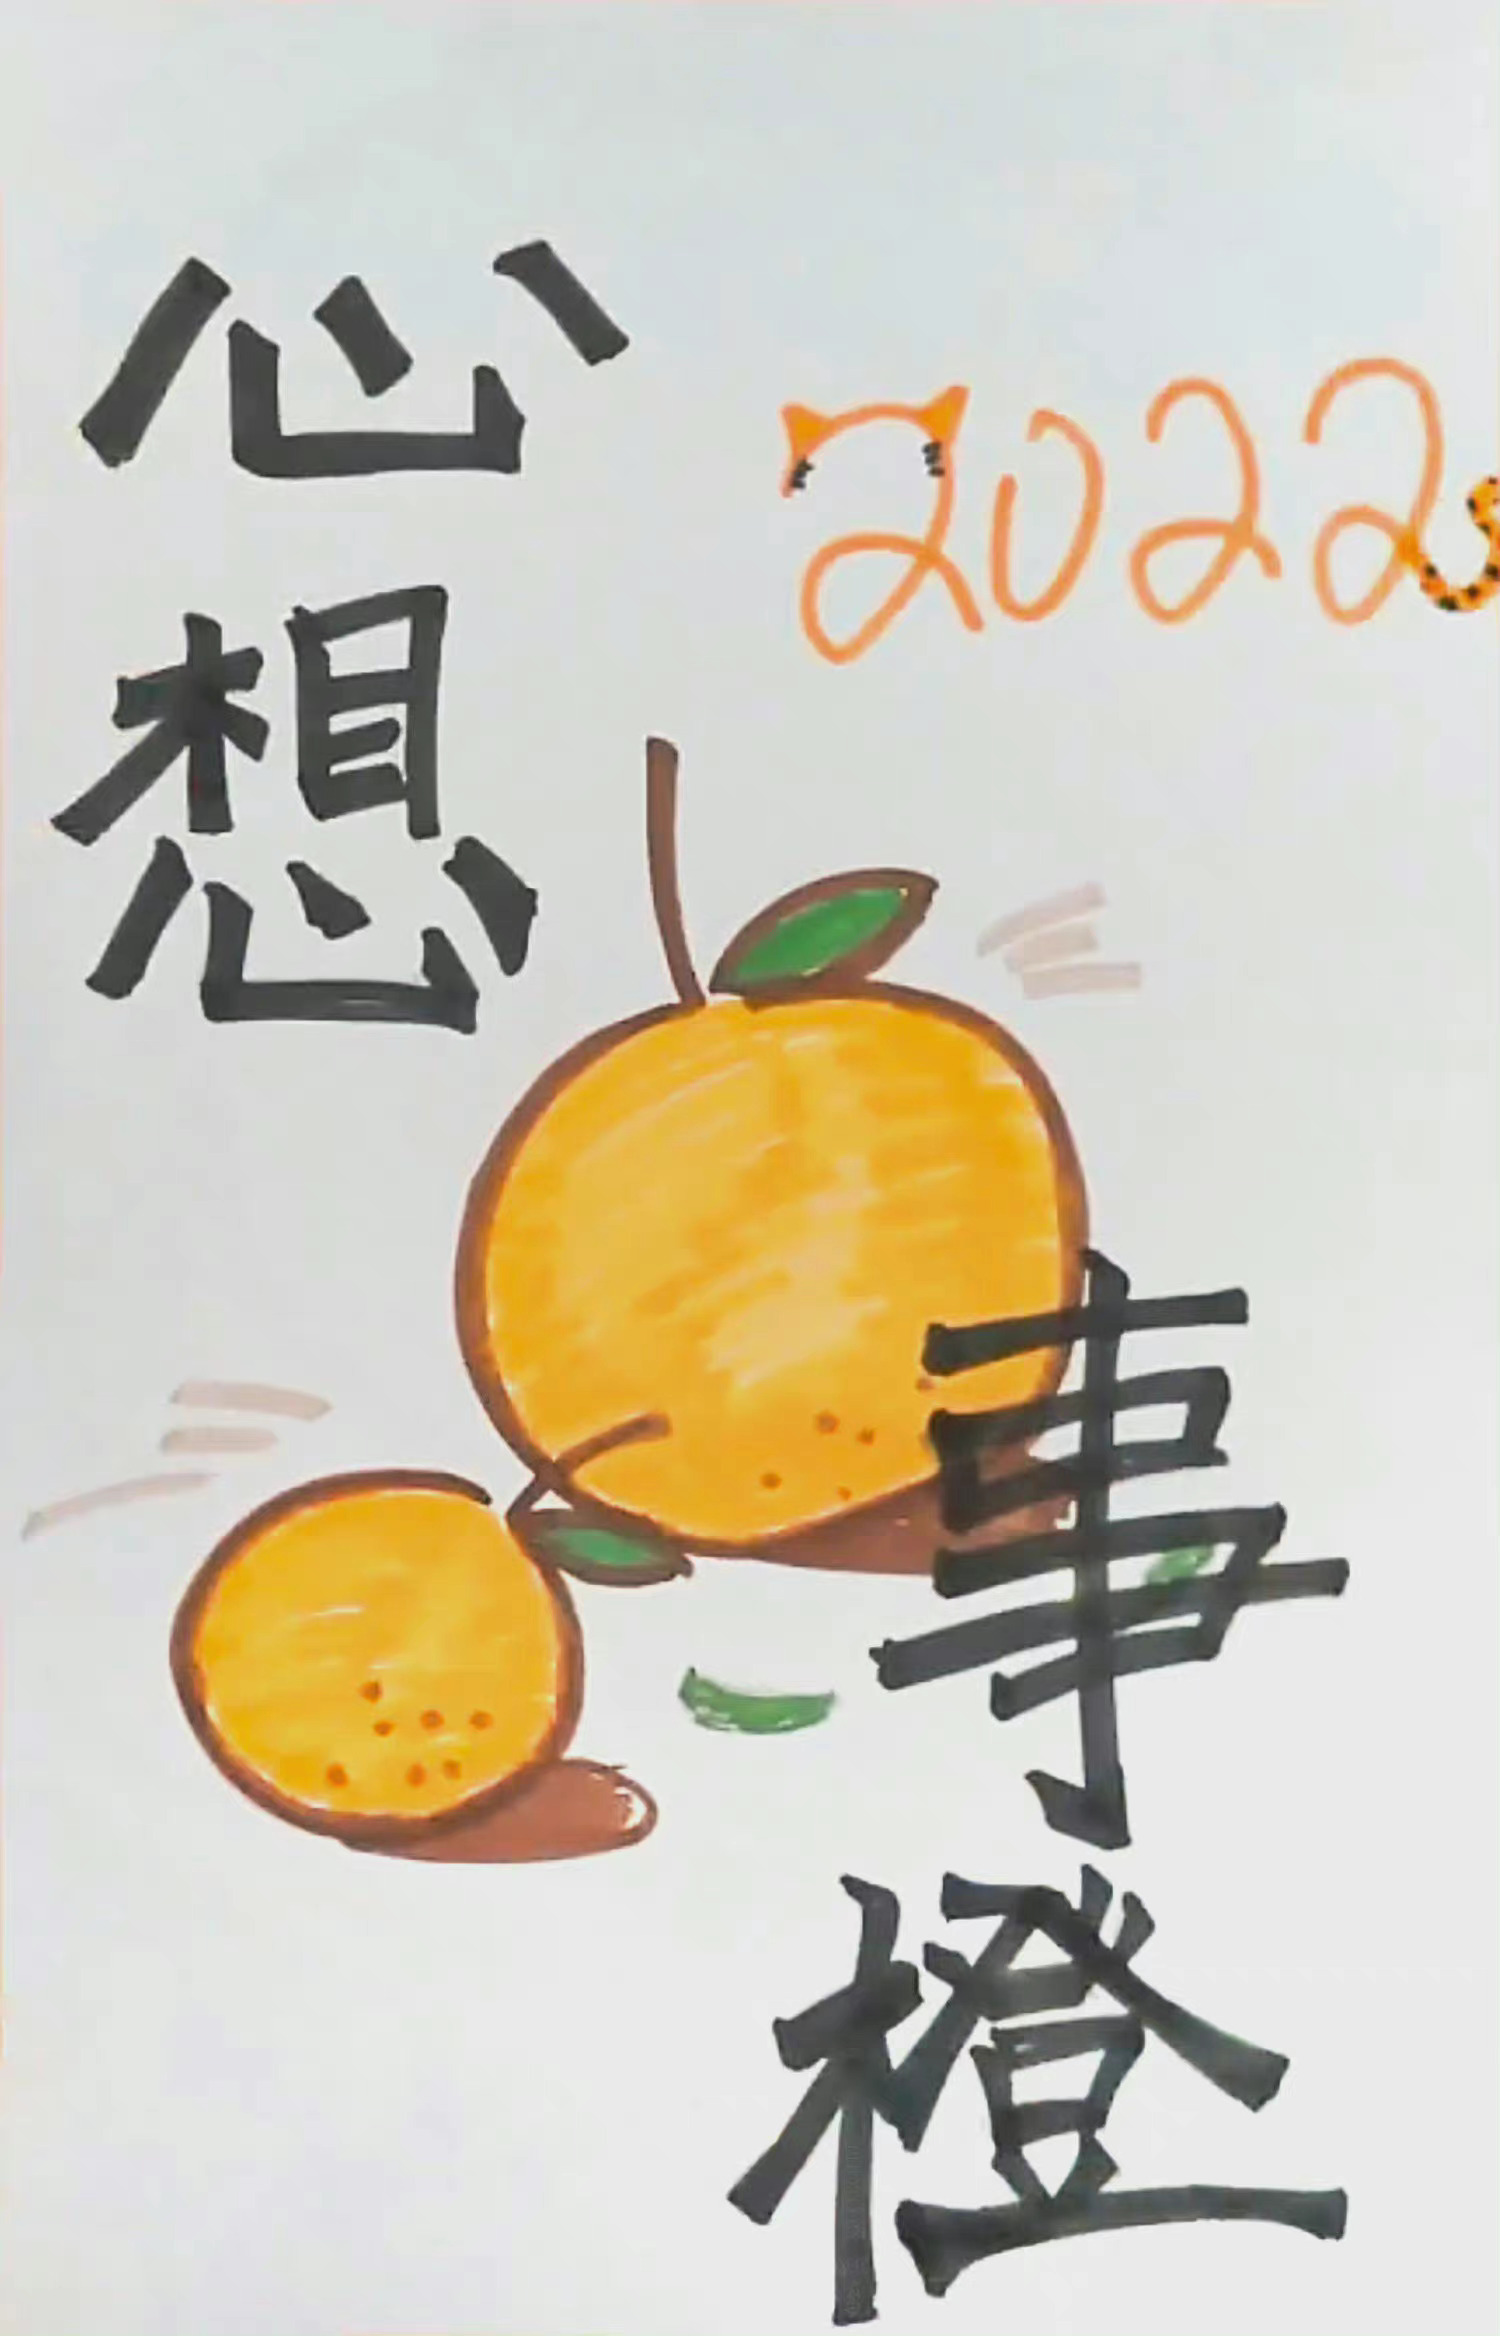 心想
2022
事橙